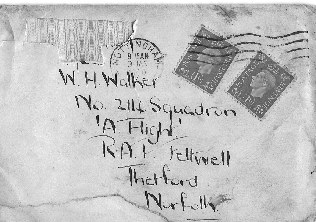 W. H. Walker
No. 214 Squadron
'A Flight'
R.A.F. Feltwell
Thetford
Norfolk.